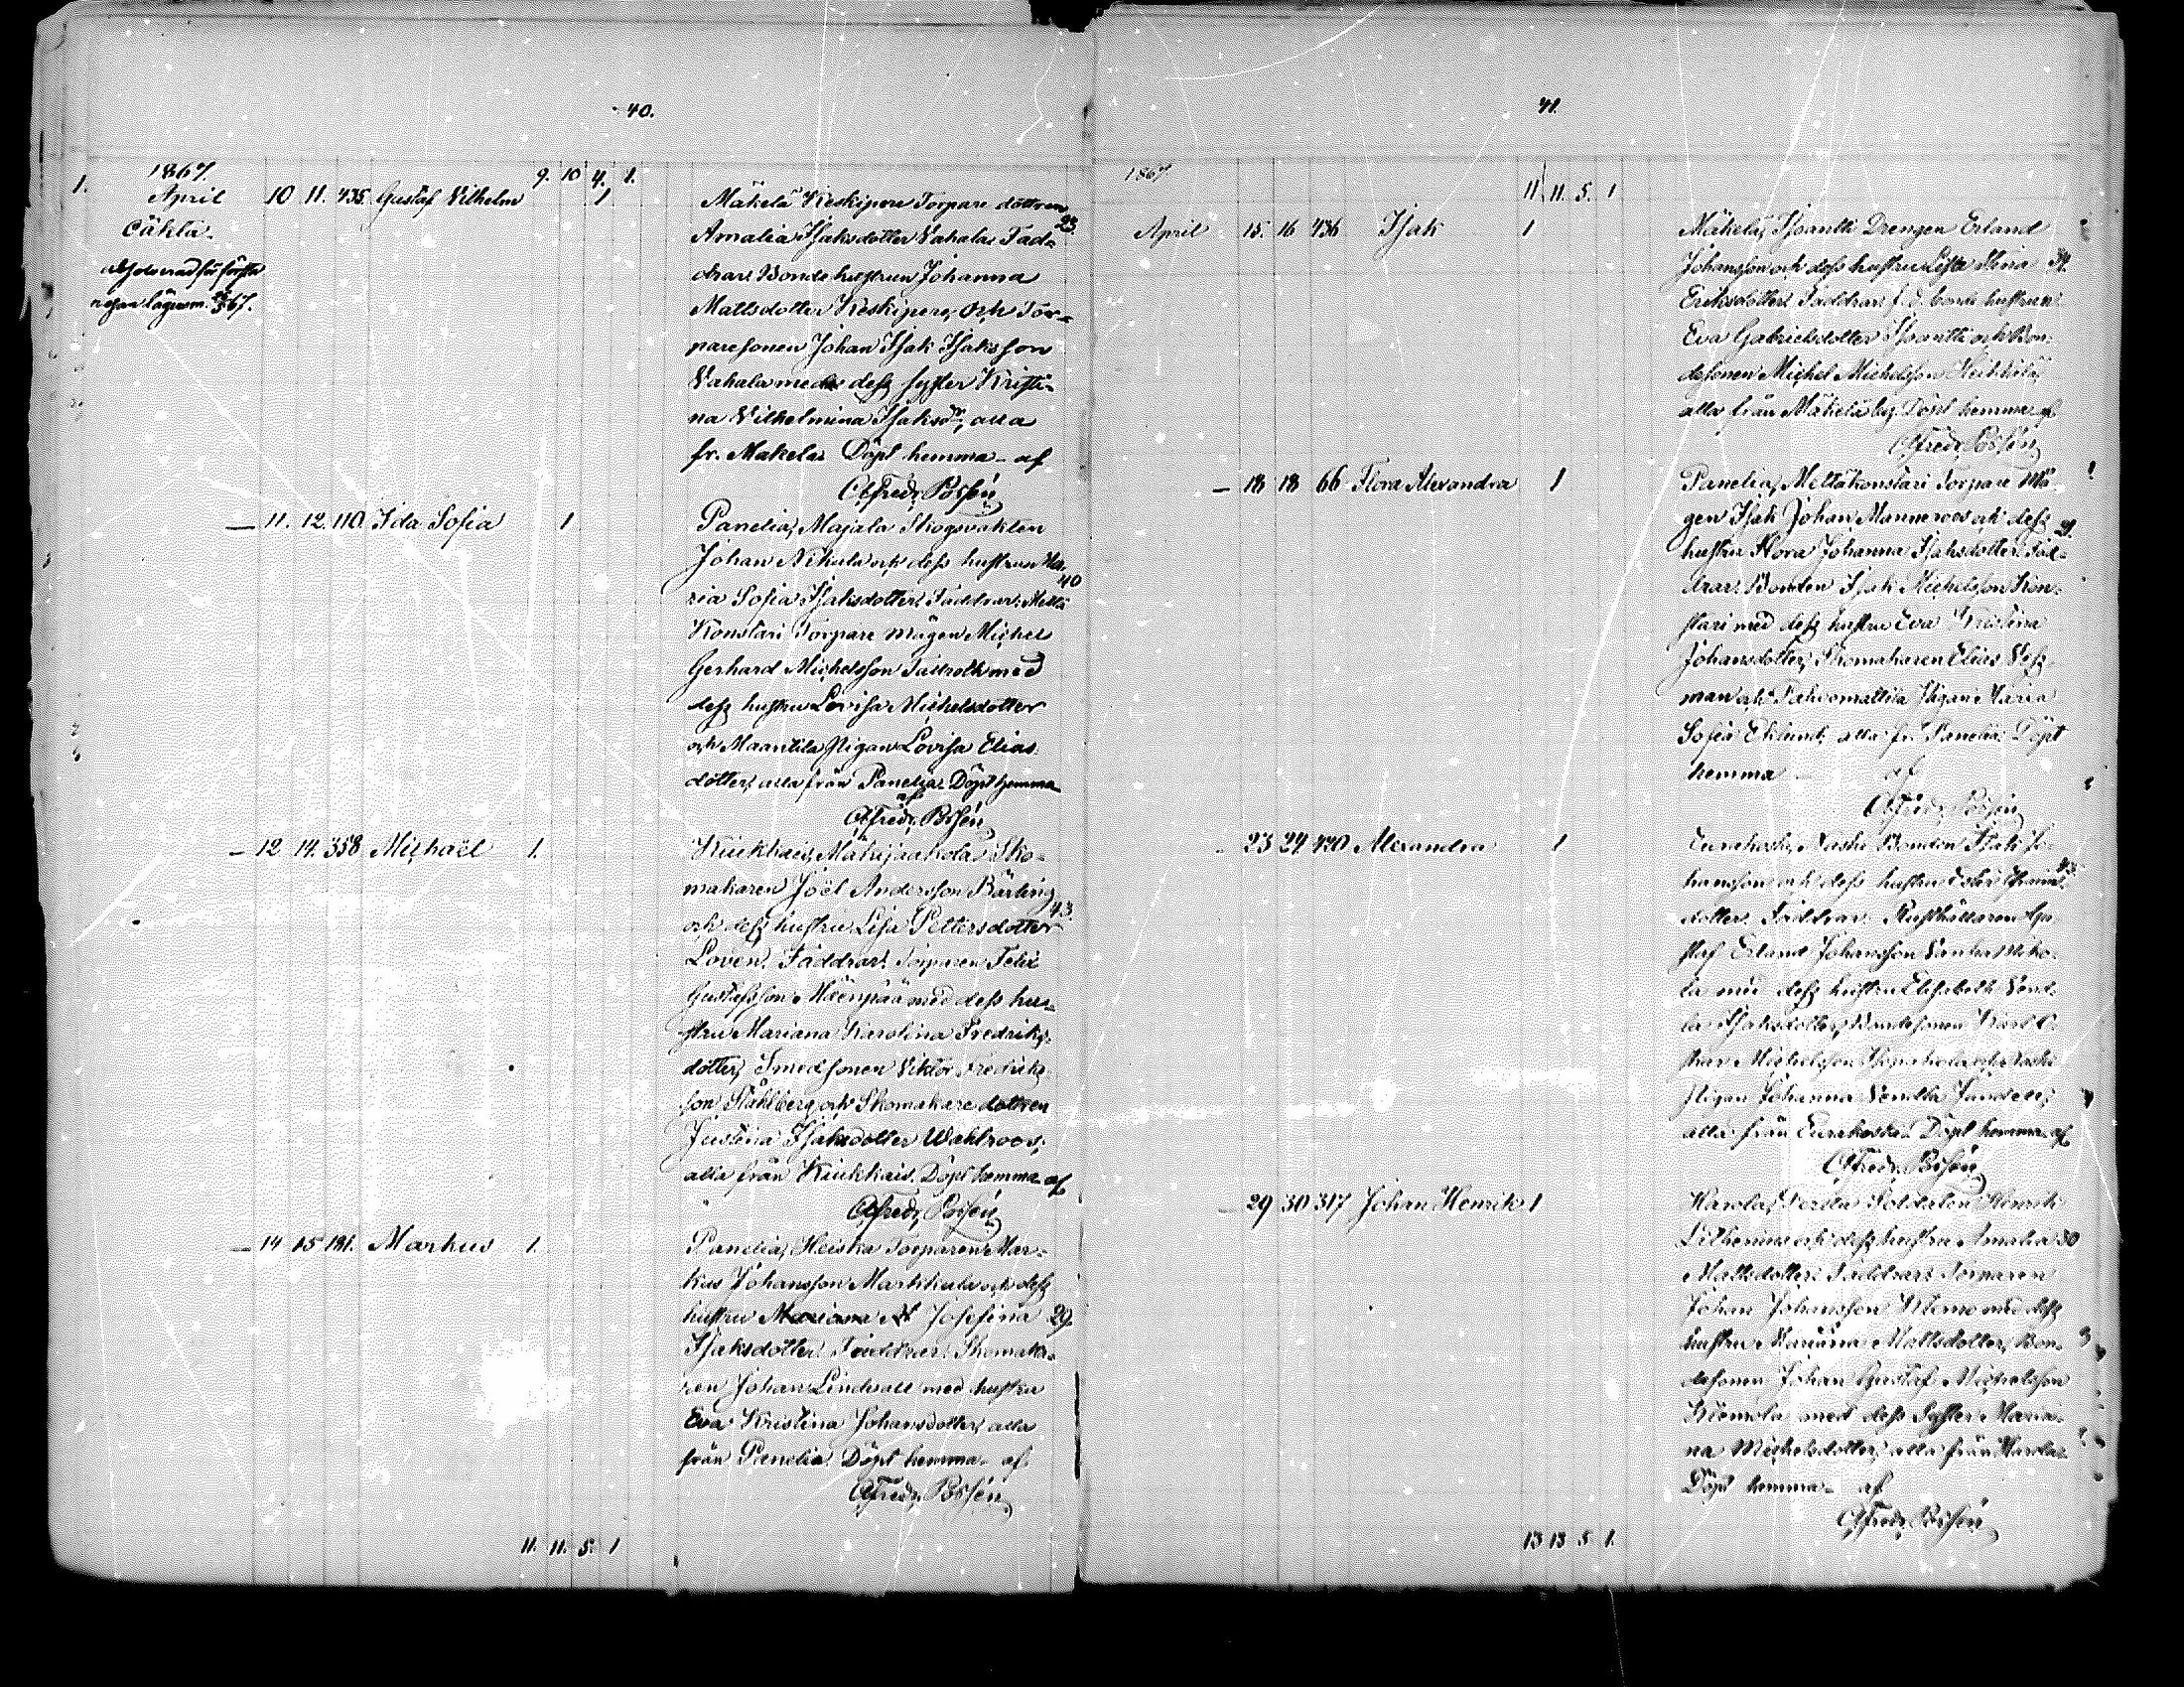 40.
1867.
9. 10 4. 1.
1. April 10 11. 435. Gustaf Vilhelm 1
oäkta.
Mäkelä Keskipere Torpare dottren
Amalia Isaksdotter Vahala. Fad= 23
drar: Bonde hustrun Johanna
Mattsdotter Keskipere, och Tor=
paresonen Johan Isak Isaksson
Vahala med dess syster Kristi=
na Vilhelmina Isaksdr, alla
fr. Makela. Döpt hemma af
Alfred Posén
— 11. 12. 110. Ida Sofia 1
Panelia, Majala Skogsvakten
Johan Nikula och dess hustru Ma
ria Sofia Isaksdotter. Faddrar: Mellä 40
Konstari Torpare mågen Michel
Gerhard Michelsson Tallroth med
dess hustru Lovisa Michelsdotter
och Maantila Pigan Lovisa Elias
dotter, alla från Panelia. Döpt hemma
af
Alfred Posén
— 12 14. 358 Michaël 1.
Kiukkais, Mäkijaakola Sko=
makaren Joël Andersson Bärling
och dess hustru Lisa Pettersdotter 43.
Loven. Faddrar: Torparen Felix
Gustafsson Mäenpää med dess hu=
stru Mariana Karolina Fredriks=
dotter, Smedsonen Viktor Fredriks
son Ståhlberg och Skomakare dottren
Justina Isaksdotter Wahlroos,
alla från Kiukkais. Döpt hemma af
Alfred Posén
— 14 15 181. Markus 1.
Panelia, Heiska Torparen Mar=
kus Johansson Markkula och dess
hustru Josefina 29.
Isaksdotter. Faddrar: Skomaka=
ren Johan Lindvall med hustru
Eva Kristina Johansdotter, alla
från Panelia. Döpt hemma af
Alfred Posén
11. 11. 5. 1
41.
1867
11 11. 5. 1
April 15. 16 436 Isak 1
Mäkelä, Drengen Erland
Johansson och dess hustru Stina 39.
Eriksdotter. Faddrar: f. d. bonde hustrun
Eva Gabrielsdotter och Bon=
desonen Michel Michelsson Heikkilä,
alla från Mäkelä by. Döpt hemma af
Alfred Posén
— 18 18 66 Flora Alexandra 1
Panelia, Melläkonstari Torpare Må=
gen Isak Johan Manneroos och dess
hustru Flora Johanna Isaksdotter. Fad=
drar: Bonden Isak Michelsson Kon=
stari med dess hustru Eva Kristina
Johansdotter, Skomakaren Elias
man och Pigan Maria
Sofia Eklund, alla fr. Panelia. Döpt
hemma af
Alfred Posén
23 24 440 Alexandra 1
Eurakoski, Bonden Isak Jo=
hansson och dess hustru 43.
dotter. Faddrar: Rusthållaren Gu=
staf Erland Johansson
la med dess hustru Elisabeth Vend=
la Isaksdotter, Bondesonen Karl O=
skar Michelsson
Pigan Johanna Vendla
alla från Eurakoski. Döpt hemma af
Alfred Posén
— 29 30 317 Johan Henrik 1
Harola, Soldaten Henrik
och dess hustru Amalia 30
Mattsdotter. Faddrar: Torparen
Johan Johansson med dess
hustru Mariana Mattsdotter, Bon=
desonen Johan Gustaf Michelsson
med dess Syster Maria=
na Michelsdotter, alla från Harola.
Döpt hemma af
Alfred Posén
13 13 5 1.